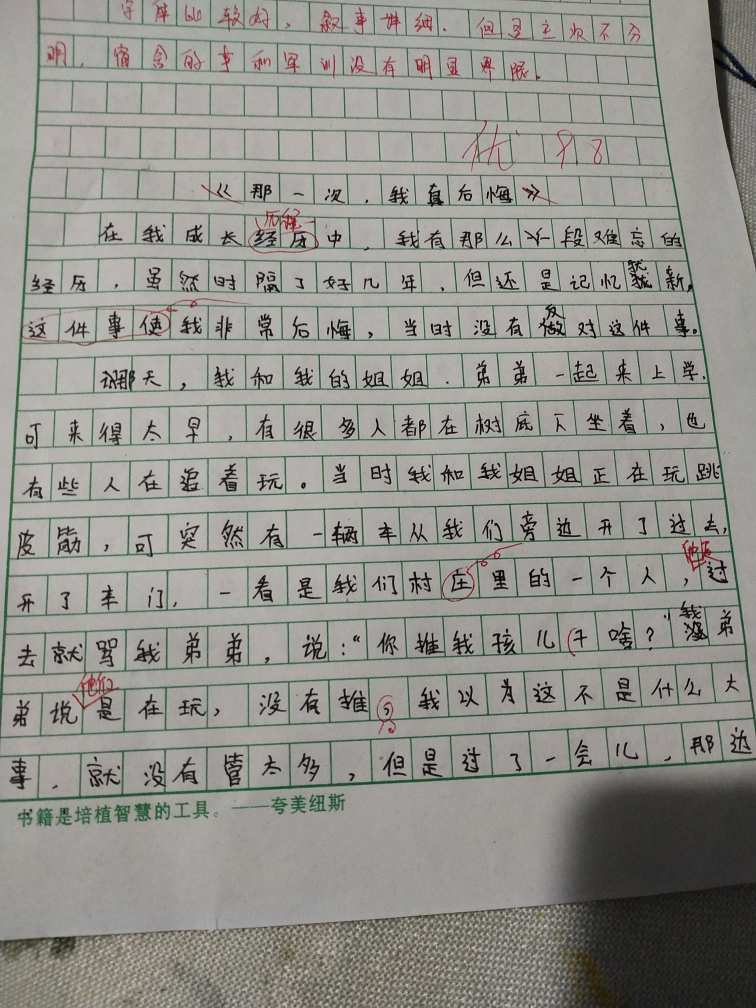 字体比较好，叙事详细．但是主次不分
明．宿舍的事和军训没有明显界限．
优 98
《那一次，我真后悔》
历程
在我成长经历中，我有那么一段难忘的
经历，虽然时隔了好几年，但还是记忆犹新，
这件事使我非常后悔，当时没有反做对这件事。
那天，我和我的姐姐．弟弟一起来上学．
可来得太早，有很多人都在树底下坐着，也
有些人在追着玩。当时我和我姐姐正在玩跳
皮筋，可突然有一辆车从我们旁边开了过去，
开了车门，一看是我们村庄里的一个人，过
去就骂我弟弟，说："你推我孩儿干啥？"我弟
他们
弟说是在玩，没有推，我以为这不是什么大
事．就没有管太多，但是过了一会儿，那边
书籍是培植智慧的工具。——夸美纽斯